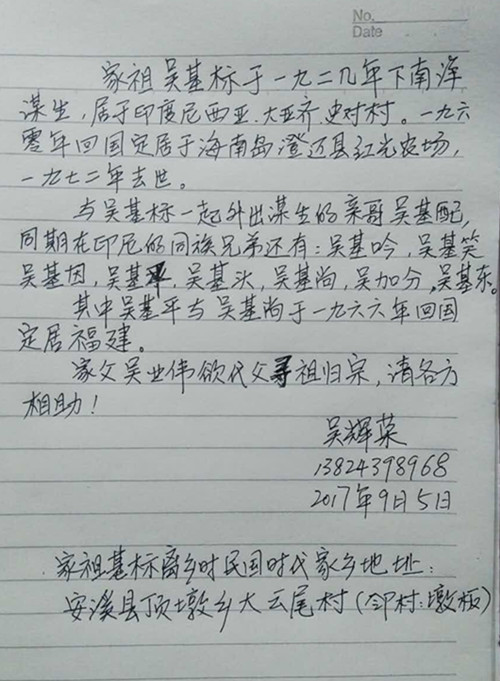 No.
Date
家祖吴基标于一九二九年下南洋
谋生,居于印度尼西亚.大亚齐.史对村。一九六
零年回国定居于海南岛澄迈县红光农场,
一九七二年去世。
与吴基标一起外出谋生的亲哥吴基配,
同期在印尼的同族兄弟还有:吴基吟,吴基笑
吴基因,吴基平,吴基汏,吴基尚,吴加分,吴基东。
其中吴基平与吴基尚于一九六六年回国
定居福建。
家父吴业伟欲代父寻祖归宗,请各方
相助!
吴辉荣
13824398968
2017年9月5日
家祖基标离乡时民国时代家乡地址:
安溪县顶墩乡大云尾村(邻村:墩板)